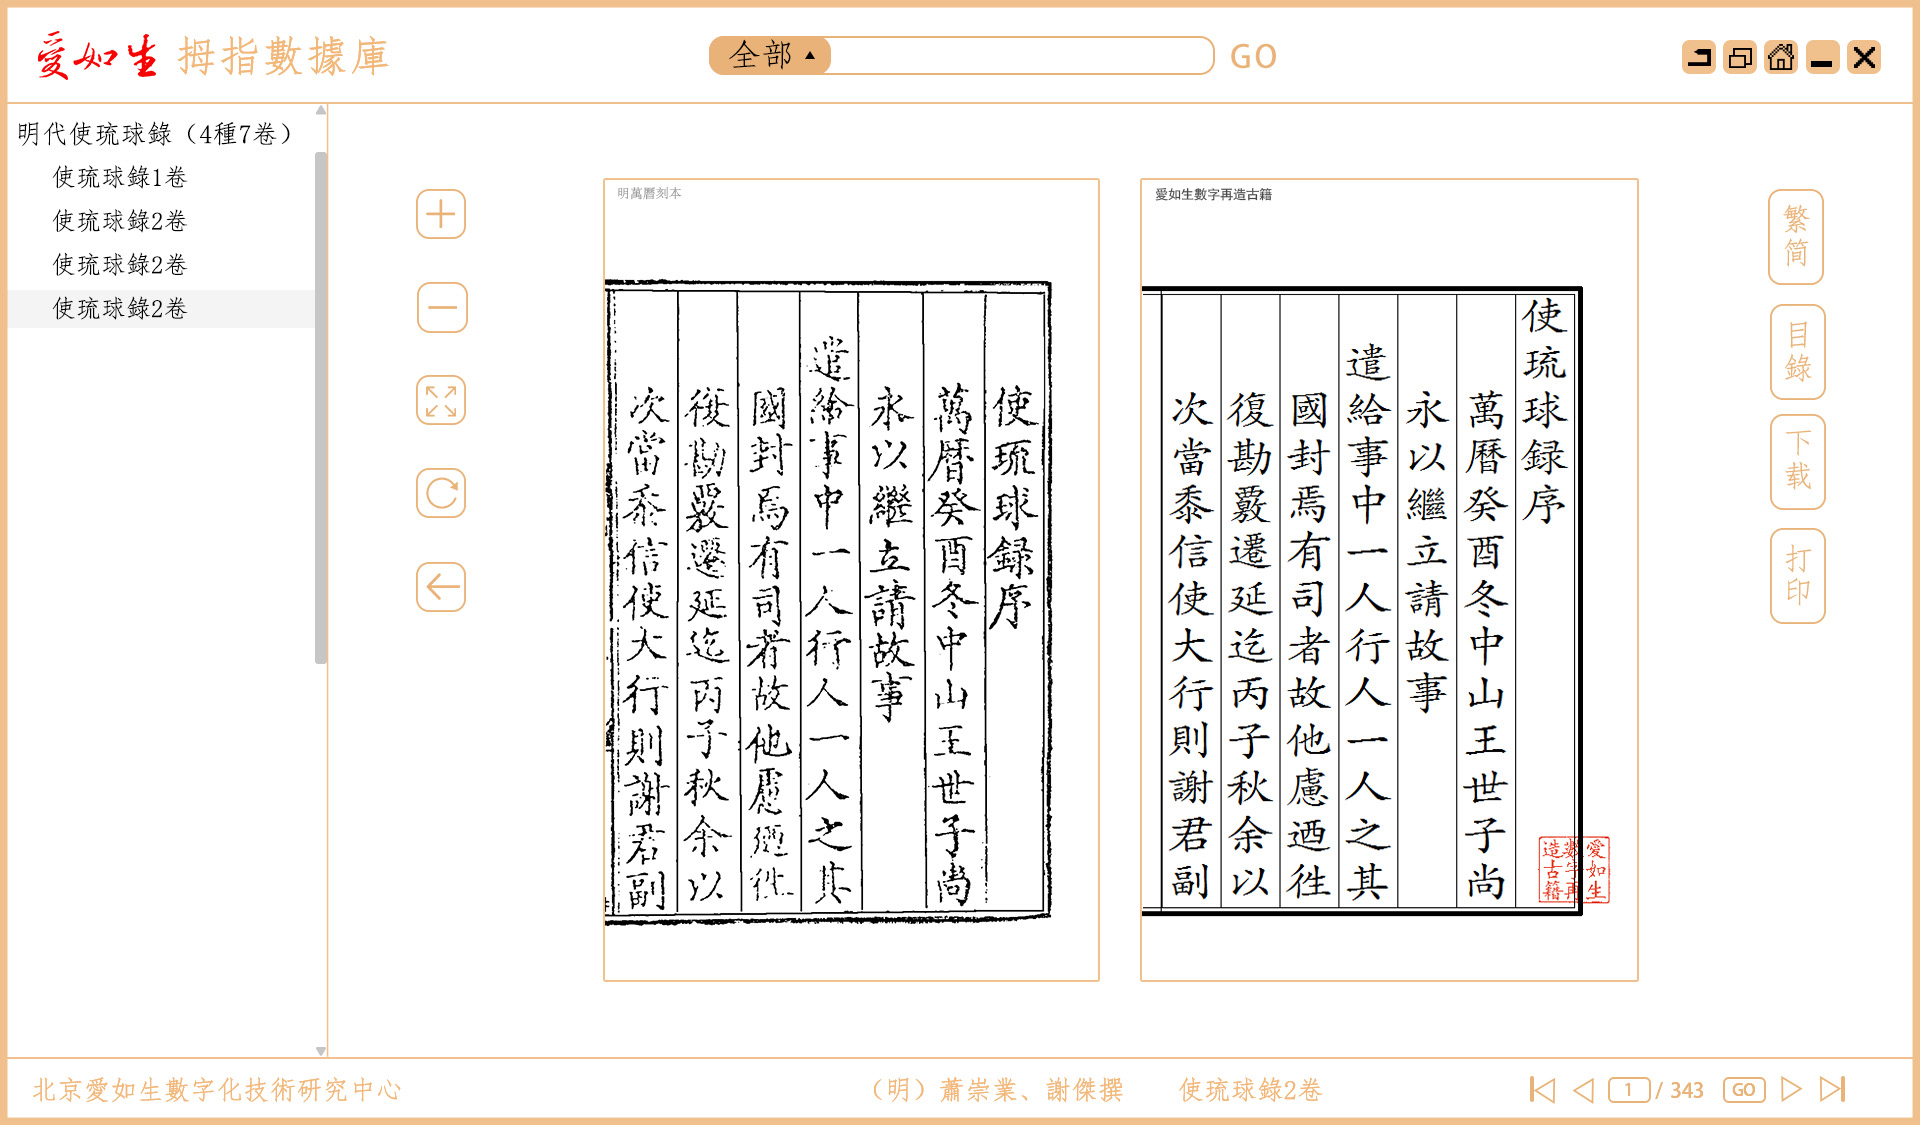 愛如生 拇指數據庫
全部
GO
明代使琉球錄（4種7卷）
使琉球錄1卷
使琉球錄2卷
使琉球錄2卷
使琉球錄2卷
明萬曆刻本
使琉球録序
萬曆癸酉冬中山王世子尚
永以繼立請故事
遣給事中一人行人一人之其
國封焉有司者故他慮迺徃
復勘覈遷延迄丙子秋余以
次當黍信使大行則謝君副
愛如生數字再造古籍
使琉球録序
萬曆癸酉冬中山王世子尚
永以繼立請故事
遣給事中一人行人一人之其
國封焉有司者故他慮迺徃
復勘覈遷延迄丙子秋余以
次當黍信使大行則謝君副
愛如生
數字再
造古籍
繁简
目錄
下载
打印
北京愛如生數字化技術研究中心
（明）蕭崇業、謝傑撰 使琉球錄2卷
1 / 343 GO